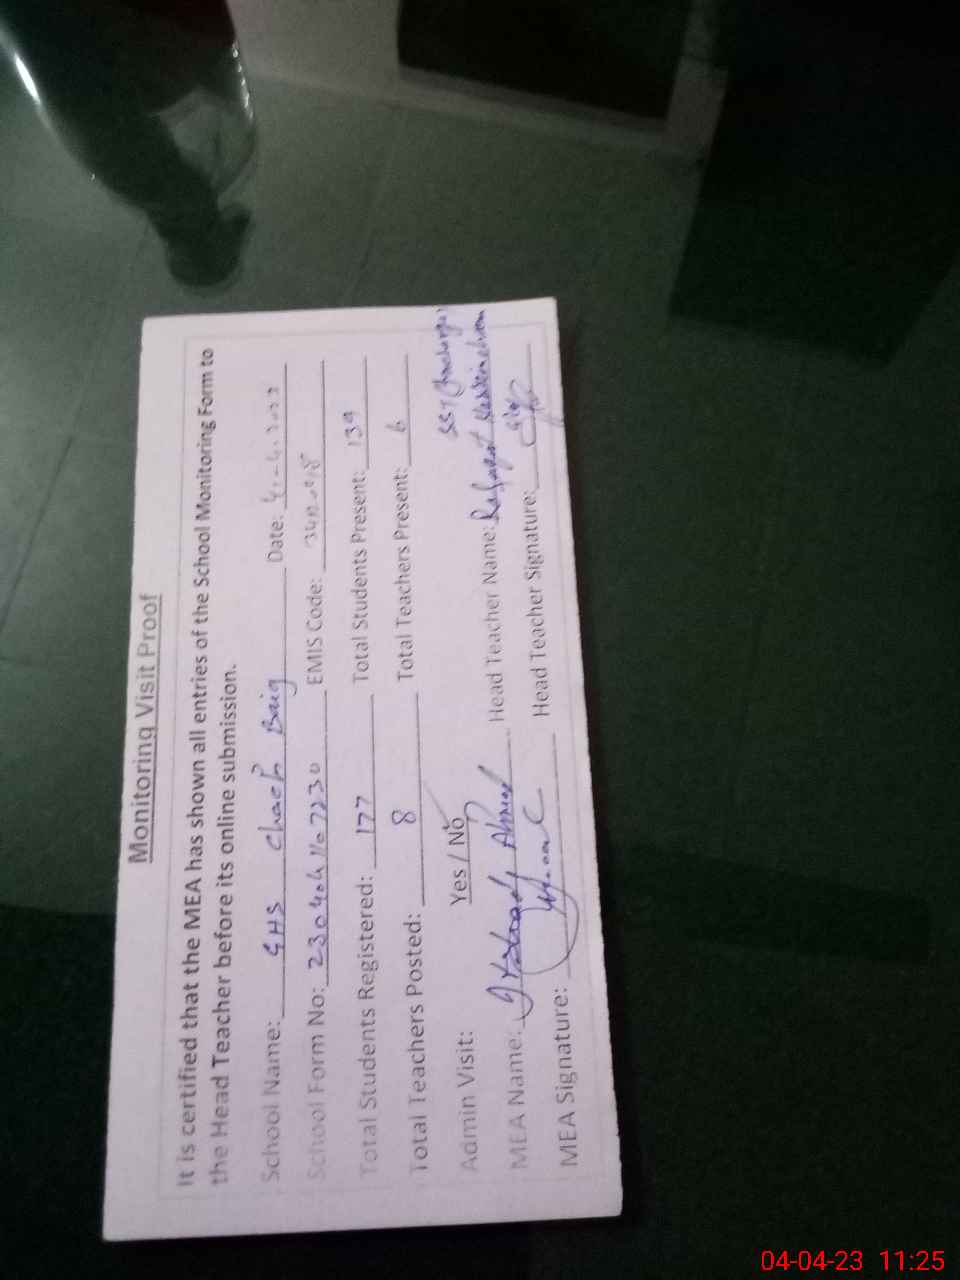 Monitoring Visit Proof
It is certified that the MEA has shown all entries of the School Monitoring Form to
the Head Teacher before its online submission.
School Name: GHS Chack Baig Date: 4-4-2023
School Form No: EMIS Code:
Total Students Registered: 177 Total Students Present: 139
Total Teachers Posted: 8 Total Teachers Present: 6
Admin Visit: Yes / No SST
MEA Name: Ahmad Head Teacher Name:
MEA Signature: Head Teacher Signature:
04-04-23 11:25